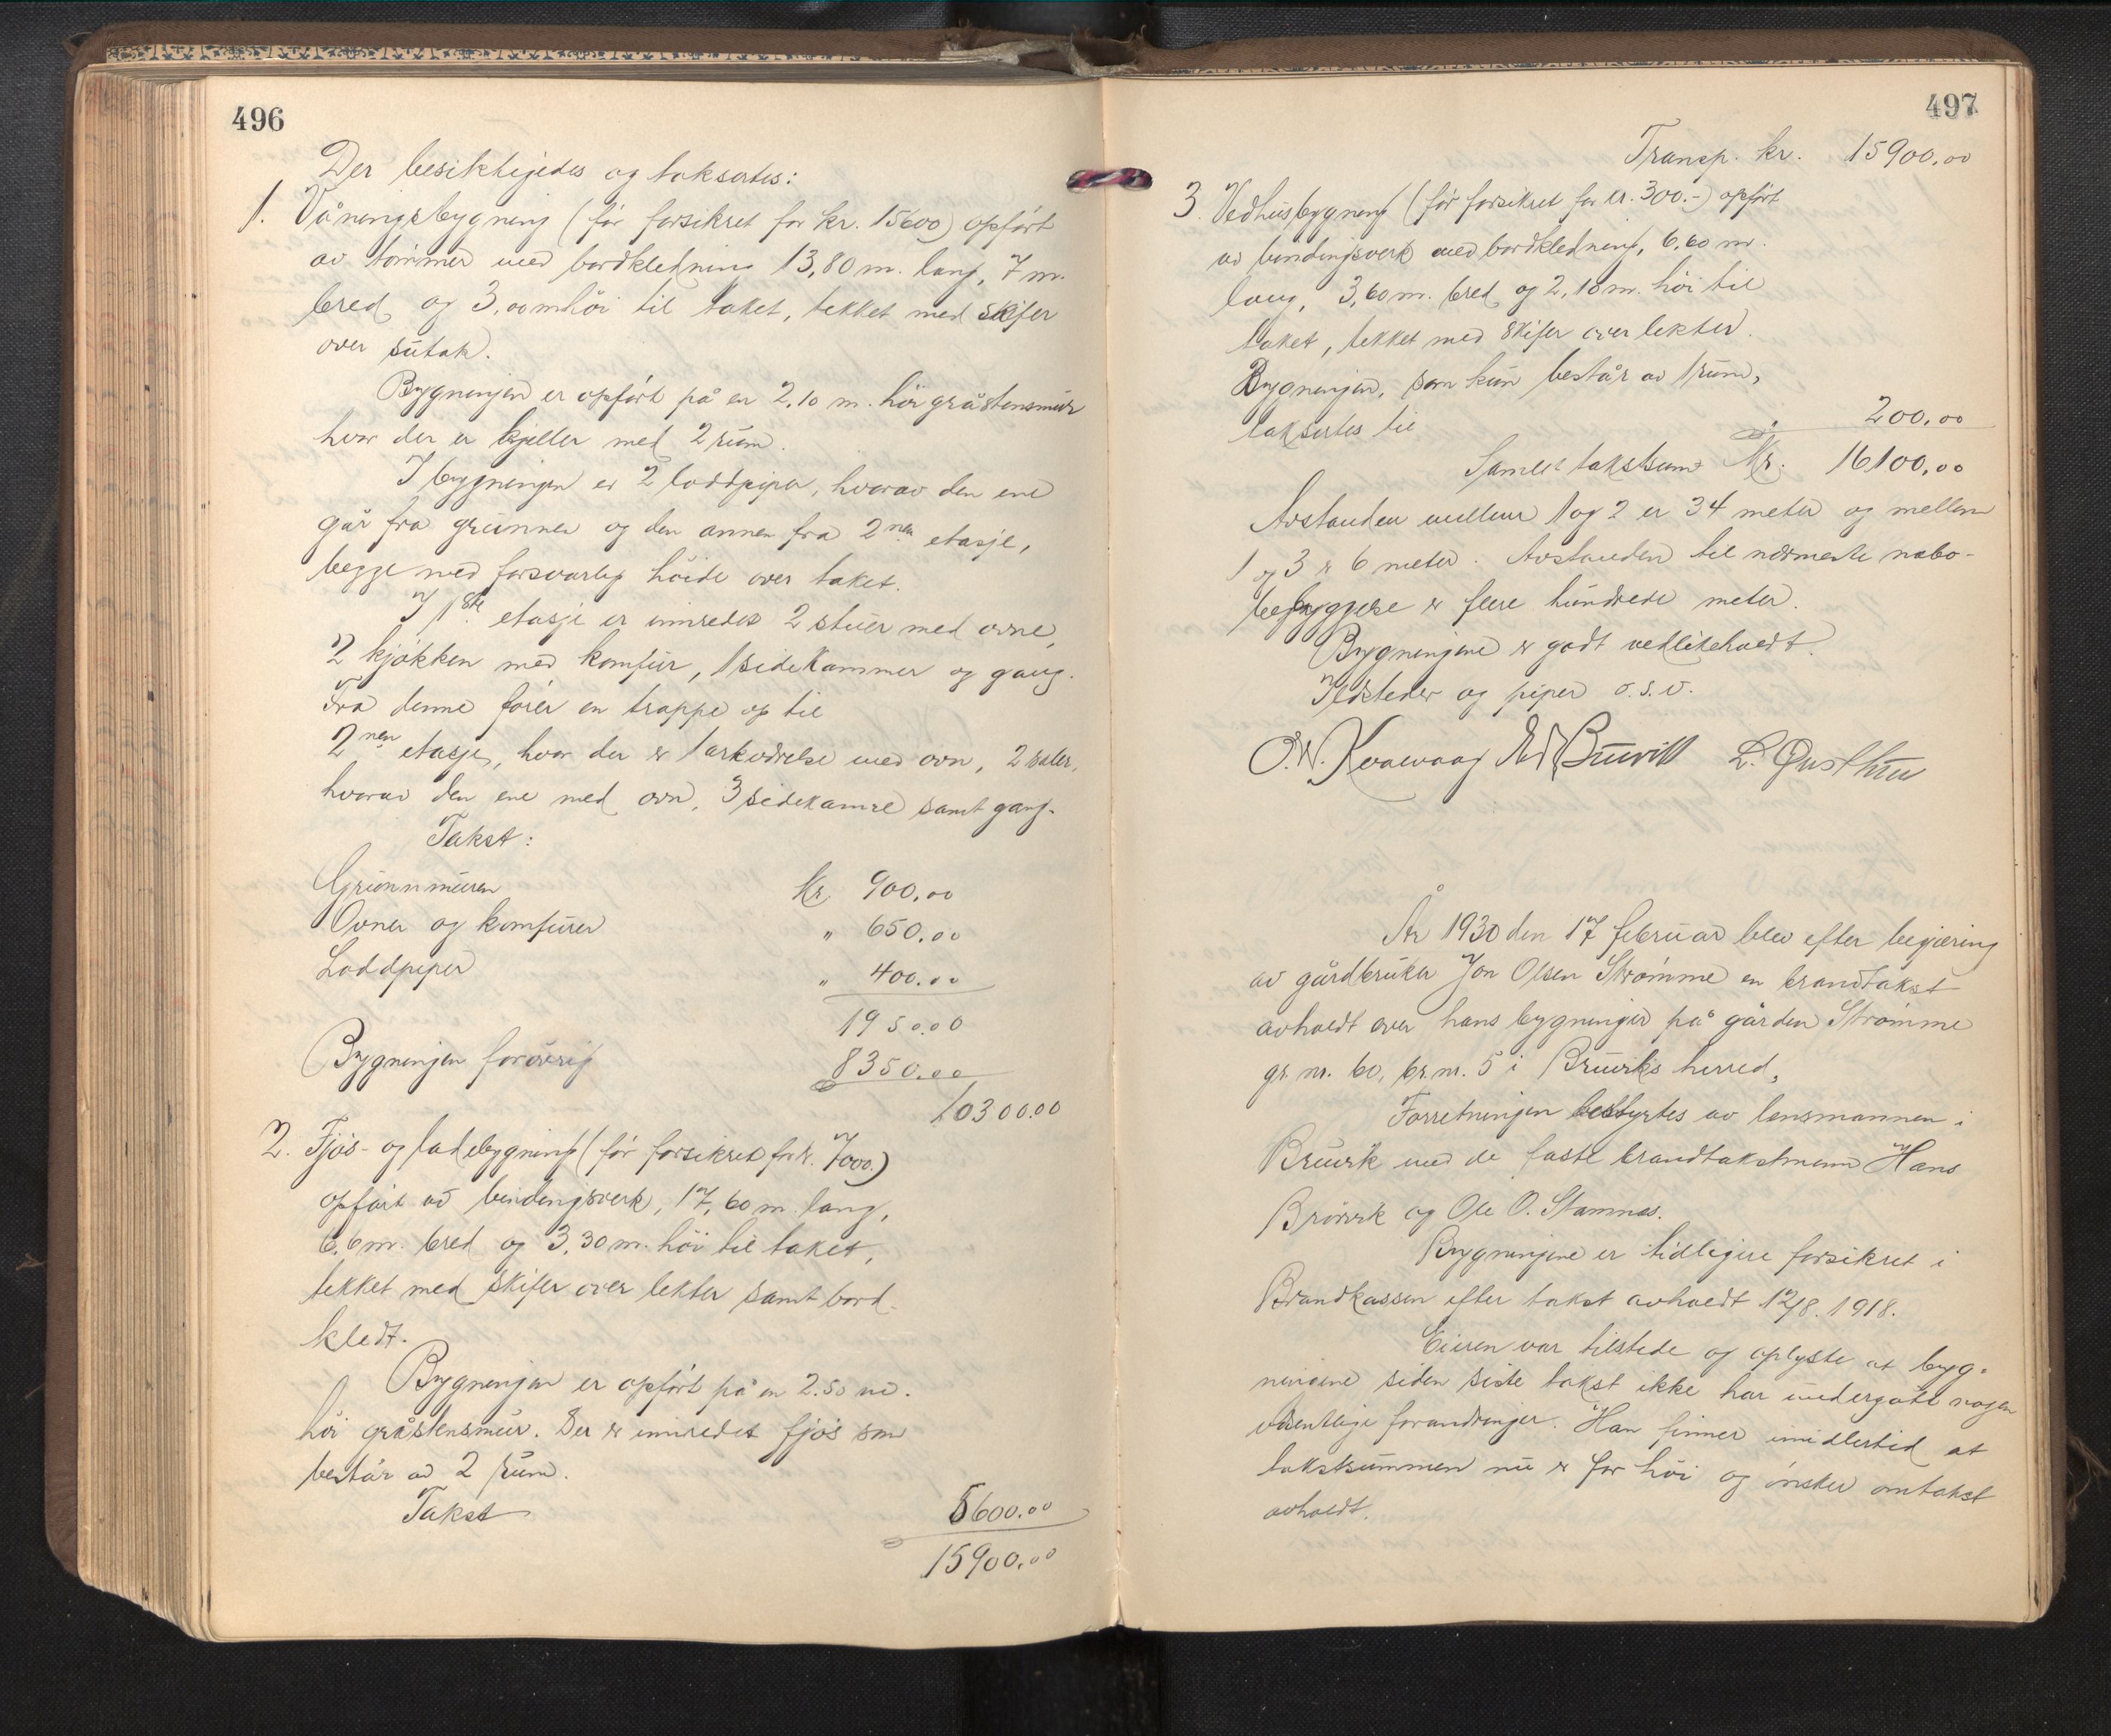 496
Der besiktigedes og taksertes:
1. Våningsbygning (før forsikret for kr. 15600) opført
av tømmer med bordkledning 13,80 m. lang, 7 m.
bred og 3,00 m høi til taket, tekket med skifer
over sutak.
Bygningen er opført på en 2,10 m. høi gråstensmur
hvor der er kjeller med 2 rum.
I bygningen er 2 loddpiper, hvorav den ene
går fra grunnen og den annen fra 2nen etasje,
begge med forsvarlig høide over taket.
I 1ste etasje er innredet 2 stuer med ovne,
2 kjøkken med komfur, 1 sidekammer og gang.
Fra denne fører en trappe op til
2nen etasje, hvor der er 1 arkværelse med ovn, 2 saler,
hvorav den ene med ovn, 3 sidekamre samt gang.
Takst:
Grunnmuren kr 900,00
Ovner og komfurer " 650,00
Loddpiper " 400,00
1950.00
Bygningen forøvrig 8350.00
10300.00
2. Fjøs- og ladebygning (før forsikret for kr. 7000.)
opført av bindingsverk, 17,60 m. lang,
6,6 m. bred og 3,30 m. høi til taket,
tekket med skifer over lekter samt bord-
kledt.
Bygningen er opført på en 2.50 m.
høi gråstensmur. Der er innredet fjøs som
består av 2 rum.
Takst 5600.00
15900.00
497
Transp. kr. 15900,00
3. Vedhusbygning (før forsikret for kr. 300.-) opført
av bindingsverk med bordkledning, 6,60 m.
lang, 3,60 m. bred og 2,10 m. høi til
taket, tekket med skifer over lekter.
Bygningen, som kun består av 1 rum,
taksertes til 200,00
Samlet takstsum Kr. 16100,00
Avstanden mellem 1 og 2 er 34 meter og mellem
1 og 3 er 6 meter. Avstanden til nærmeste nabo-
bebyggelse er flere hundrede meter.
Bygningene er godt vedlikeholdt.
Ildsteder og piper o.s.v.
O. W. Kvalvaag Bruvik L. Øusthun
År 1930 den 17 februar blev efter begjæring
av gårdbruker Jon Olsen Strømme en brandtakst
avholdt over hans bygninger på gården Strømme
gr. nr. 60, br. nr. 5 i Bruviks herred,
Forretningen bestyrtes av lensmannen i
Bruvik med de faste brandtakstmenn Hans
Bruvik og Ole O. Stamnes.
Bygningene er tidligere forsikret i
Brandkassen efter takst avholdt 12/8. 1918.
Eieren var tilstede og oplyste at byg-
ningene siden siste takst ikke har undergått nogen
vesentlige forandringer. Han finner imidlertid at
takstsummen nu er for høi og ønsker omtakst
avholdt.